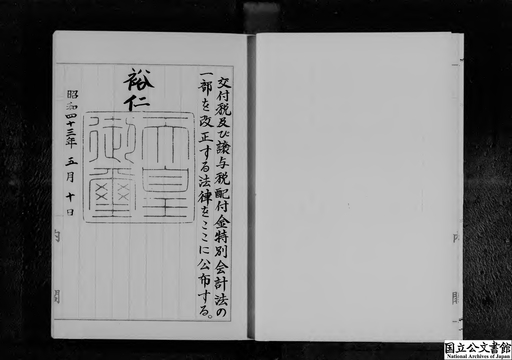 交付税及び譲与税配付金特別会計法の
一部を改正する法律をここに公布する。
裕仁
天皇
御璽
昭和四十三年五月十日
国立公文書館
National Archives of Japan